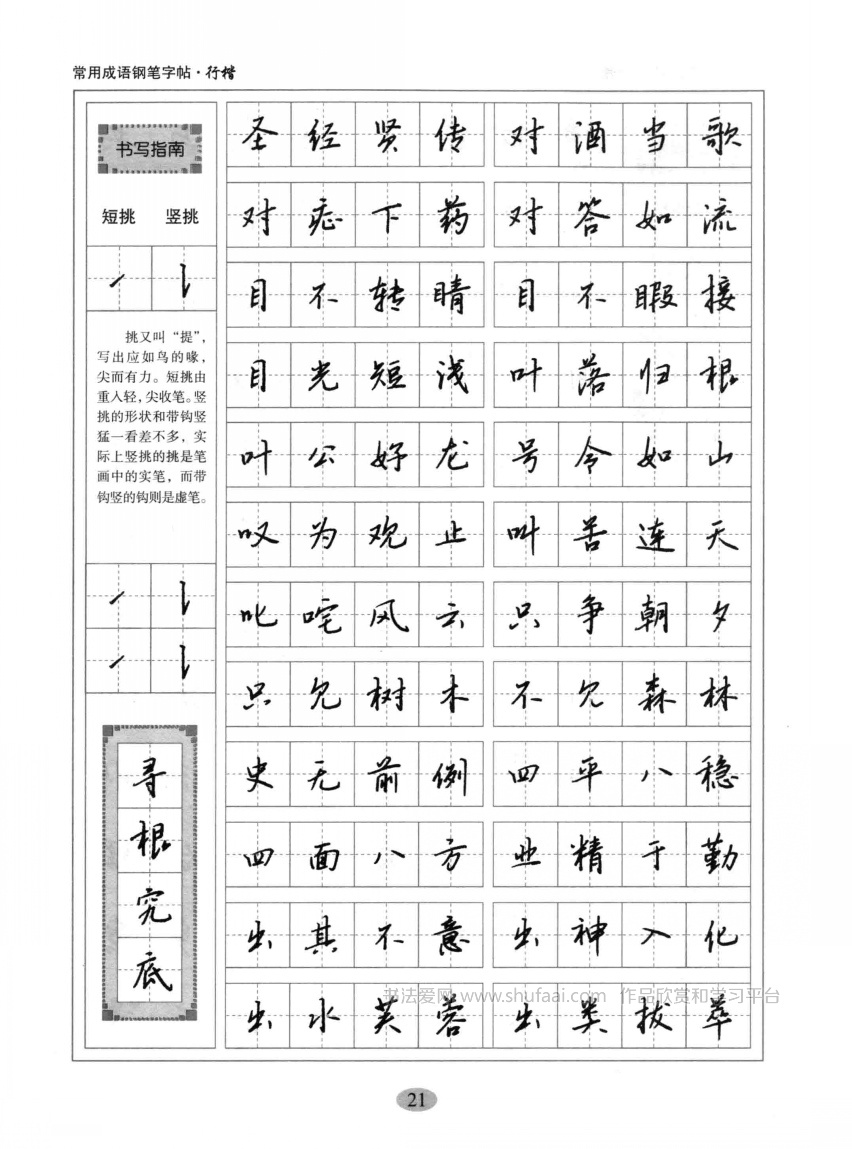 常用成语钢笔字帖·行楷
书写指南
短挑 竖挑
挑又叫“提”，
写出应如鸟的喙，
尖而有力。短挑由
重入轻，尖收笔。竖
挑的形状和带钩竖
猛一看差不多，实
际上竖挑的挑是笔
画中的实笔，而带
钩竖的钩则是虚笔。
寻根究底
圣经贤传 对酒当歌
对症下药 对答如流
目不转睛 目不暇接
目光短浅 叶落归根
叶公好龙 号令如山
叹为观止 叫苦连天
叱咤风云 只争朝夕
只见树木 不见森林
史无前例 四平八稳
四面八方 业精于勤
出其不意 出神入化
出水芙蓉 出类拔萃
书法爱网 www.shufaai.com 作品欣赏和学习平台
21